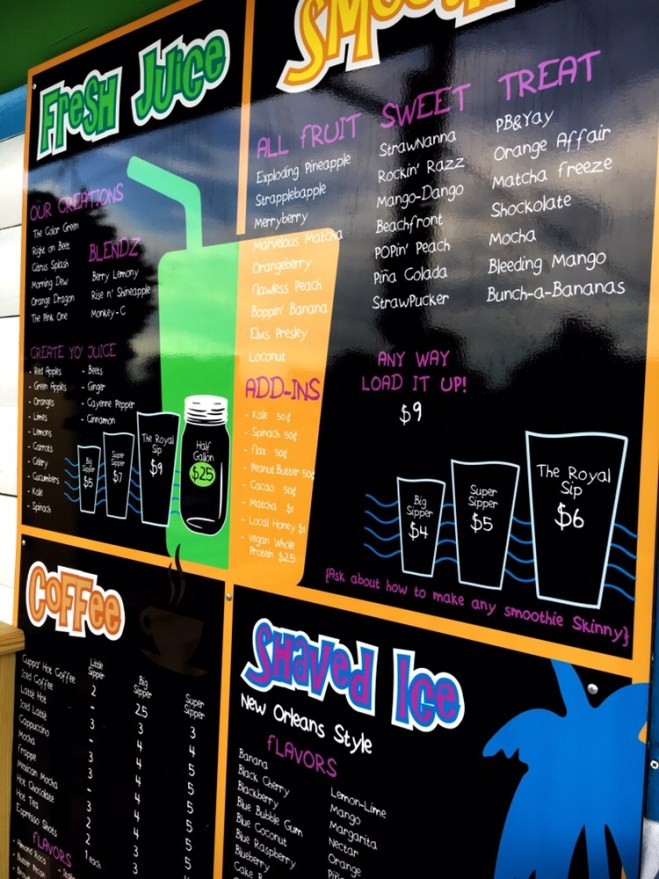 Fresh Juice
OUR CREATIONS
The Color Green
Right on Beet
Citrus Splash
Morning Dew
Orange Dragon
The Pink One
BLENDZ
Berry Lemony
Rise n' Shineapple
Monkey-C
CREATE YO' JUICE
- Red Apples
- Green Apples
- Oranges
- Limes
- Lemons
- Carrots
- Celery
- Cucumbers
- Kale
- Spinach
- Beets
- Ginger
- Cayenne Pepper
- Cinnamon
Big
Sipper
$5
Super
Sipper
$7
The Royal
Sip
$9
Half
Gallon
$25
ALL FRUIT
Exploding Pineapple
Strapplebapple
Merryberry
Marvelous Matcha
Orangeberry
Flawless Peach
Boppin' Banana
Elvis Presley
Loconut
SWEET
StrawNanna
Rockin' Razz
Mango-Dango
Beachfront
POPin' Peach
Piña Colada
StrawPucker
TREAT
PB&Yay
Orange Affair
Matcha Freeze
Shockolate
Mocha
Bleeding Mango
Bunch-a-Bananas
ADD-INS
- Kale 50¢
- Spinach 50¢
- Flax 50¢
- Peanut Butter 50¢
- Cacao 50¢
- Matcha $1
- Local Honey $1
- Vegan Whole
Protein $2.5
ANY WAY
LOAD IT UP!
$9
Big
Sipper
$4
Super
Sipper
$5
The Royal
Sip
$6
{Ask about how to make any smoothie Skinny}
Coffee
Little
Sipper
Big
Sipper
Super
Sipper
Cuppa' Hot Coffee 2 2.5 3
Iced Coffee
Latte Hot
Iced Latte
Cappuccino
Mocha
Frappe
Mexican Mocha
Hot Chocolate
Hot Tea
Espresso Shots 1 each
FLAVORS
- Almond Roca
Shaved Ice
New Orleans Style
FLAVORS
Banana
Black Cherry
Blackberry
Blue Bubble Gum
Blue Coconut
Blue Raspberry
Blueberry
Lemon-Lime
Mango
Margarita
Nectar
Orange